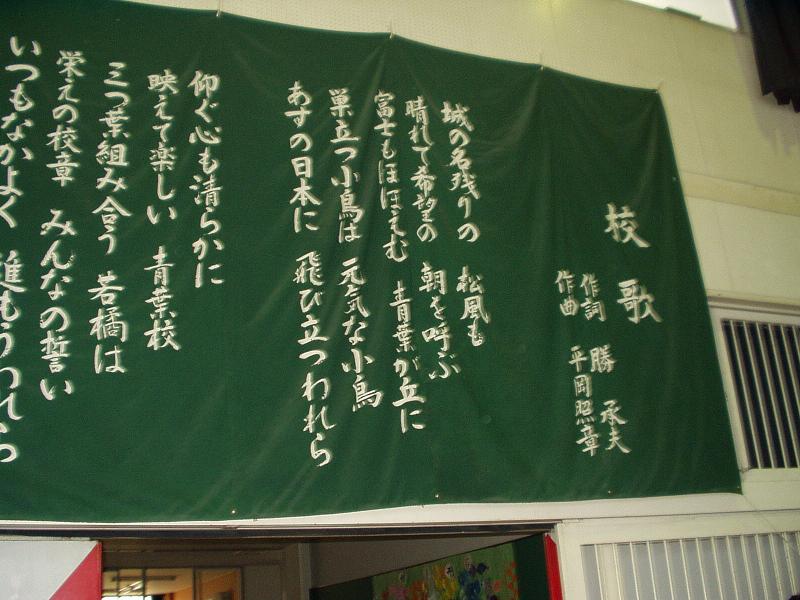 校歌
作詞 勝 承夫
作曲 平岡照章
城の名残りの 松風も
晴れて希望の 朝を呼ぶ
富士もほほえむ 青葉が丘に
巣立つ小鳥は 元気な小鳥
あすの日本に 飛び立つわれら
仰ぐ心も清らかに
映えて楽しい 青葉校
三つ葉組み合う 若橘は
栄えの校章 みんなの誓い
いつもなかよく 進もうわれら